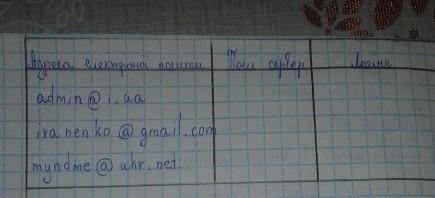 Адреса електроної пошти Пош сервер Логін
admin@i.ua
ivanenko@gmail.com
myndme@ukr.net